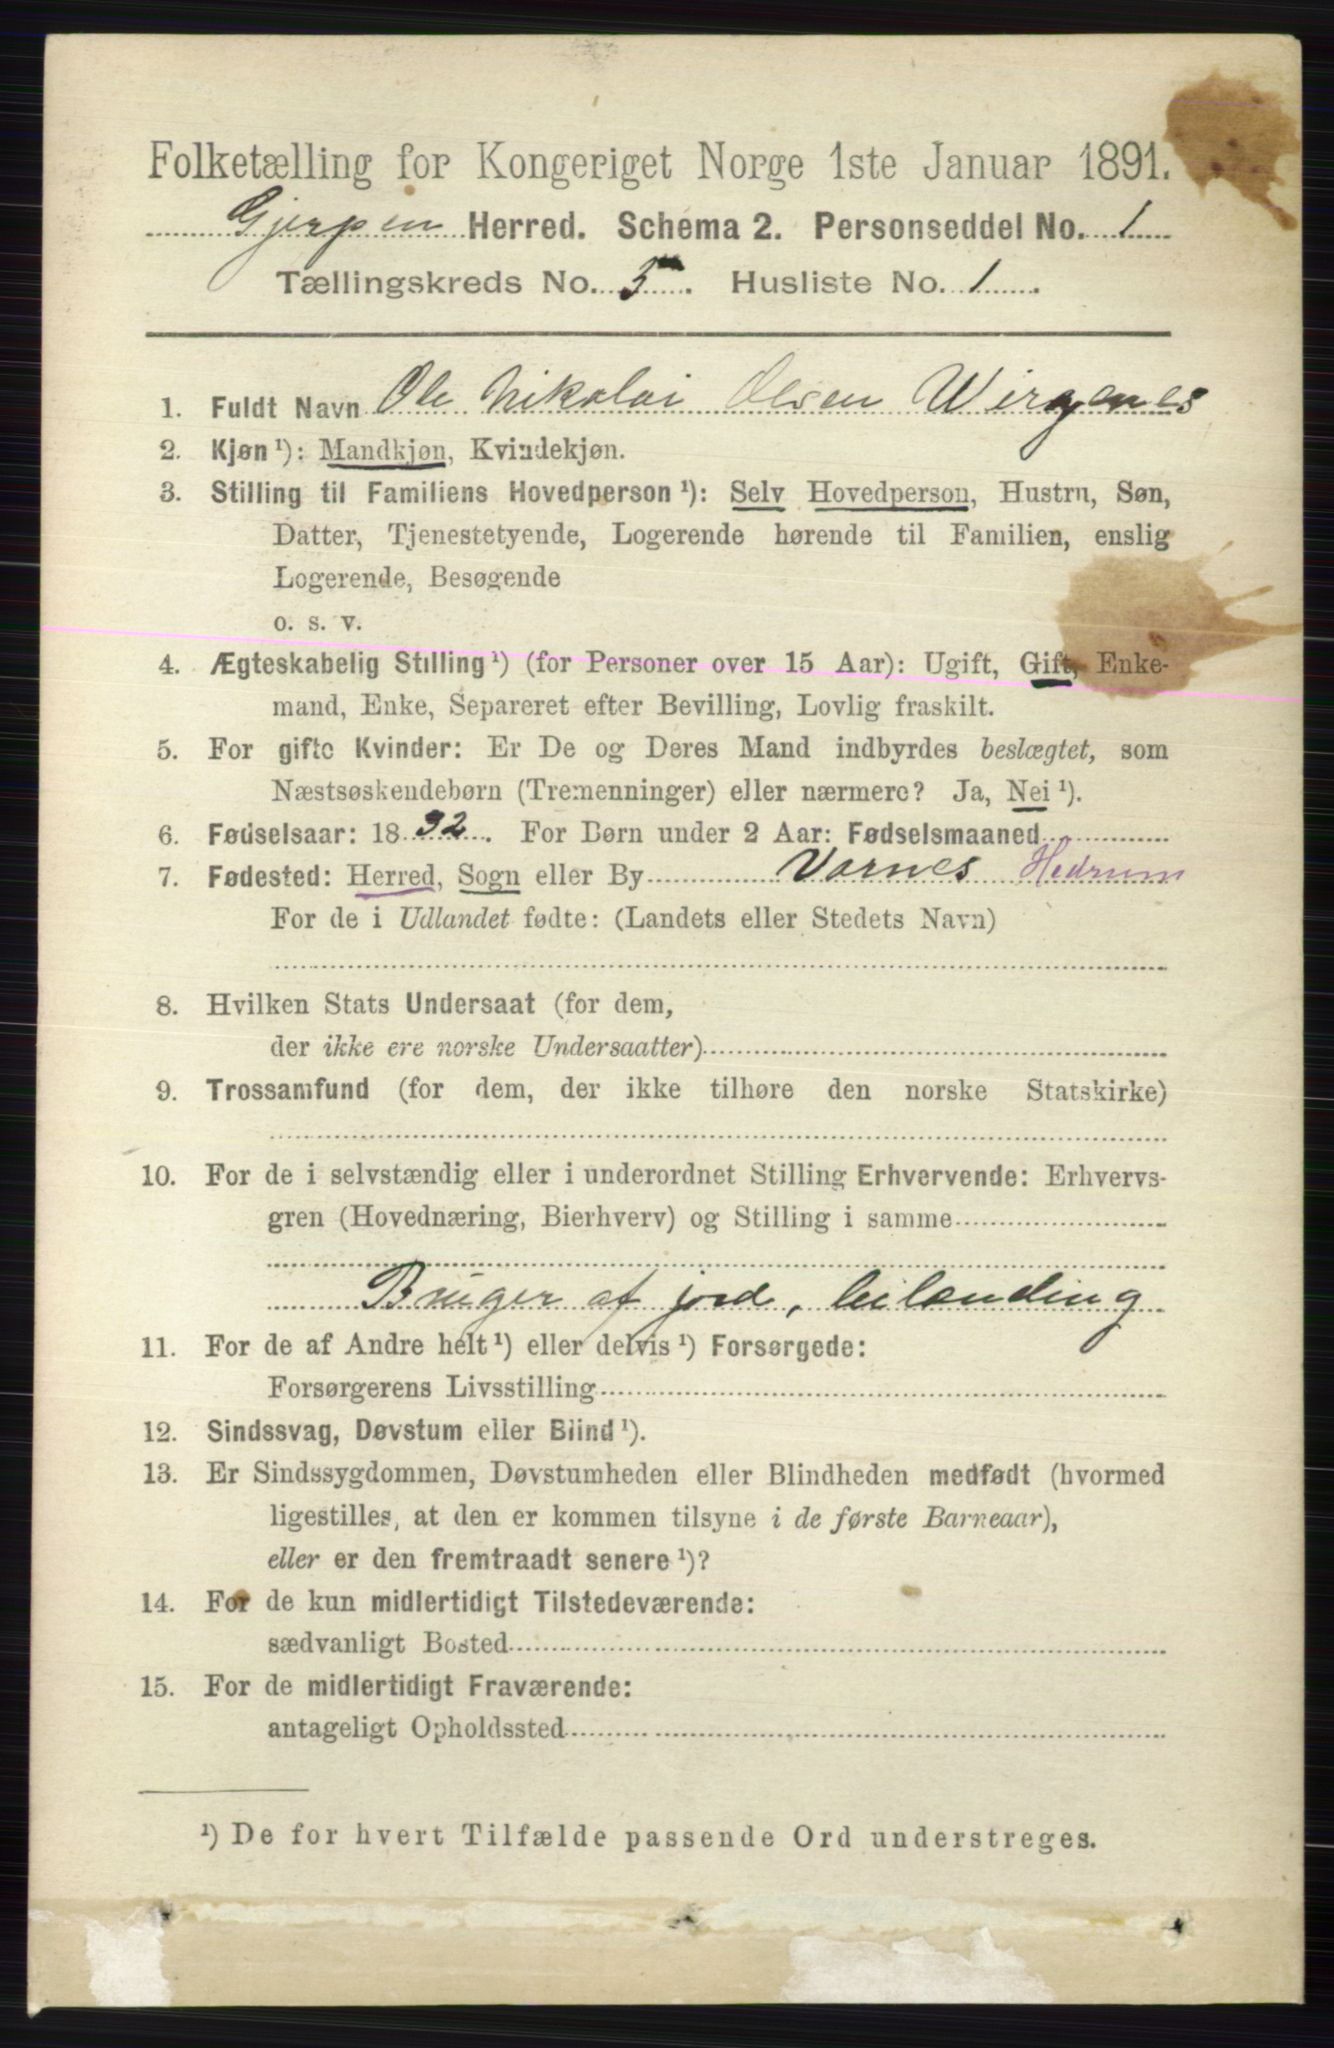 Folketælling for Kongeriget Norge 1ste Januar 1891.
Gjerpen Herred. Schema 2. Personseddel No. 1
Tællingskreds No. 5. Husliste No. 1.
1. Fuldt Navn Ole Nikolai Olsen Wirgenes
2. Kjøn ¹): Mandkjøn, Kvindekjøn.
3. Stilling til Familiens Hovedperson ¹): Selv Hovedperson, Hustru, Søn,
Datter, Tjenestetyende, Logerende hørende til Familien, enslig
Logerende, Besøgende
o. s. v.
4. Ægteskabelig Stilling ¹) (for Personer over 15 Aar): Ugift, Gift, Enke-
mand, Enke, Separeret efter Bevilling, Lovlig fraskilt.
5. For gifte Kvinder: Er De og Deres Mand indbyrdes beslægtet, som
Næstsøskendebørn (Tremenninger) eller nærmere? Ja, Nei ¹).
6. Fødselsaar: 18 32. For Børn under 2 Aar: Fødselsmaaned
7. Fødested: Herred, Sogn eller By Varnes Hedrum
For de i Udlandet fødte: (Landets eller Stedets Navn)
8. Hvilken Stats Undersaat (for dem,
der ikke ere norske Undersaatter)
9. Trossamfund (for dem, der ikke tilhøre den norske Statskirke)
10. For de i selvstændig eller i underordnet Stilling Erhvervende: Erhvervs-
gren (Hovednæring, Bierhverv) og Stilling i samme
Bruger af jord, leilænding
11. For de af Andre helt ¹) eller delvis ¹) Forsørgede:
Forsørgerens Livsstilling
12. Sindssvag, Døvstum eller Blind ¹).
13. Er Sindssygdommen, Døvstumheden eller Blindheden medfødt (hvormed
ligestilles, at den er kommen tilsyne i de første Barneaar),
eller er den fremtraadt senere ¹)?
14. For de kun midlertidigt Tilstedeværende:
sædvanligt Bosted
15. For de midlertidigt Fraværende:
antageligt Opholdssted
¹) De for hvert Tilfælde passende Ord understreges.